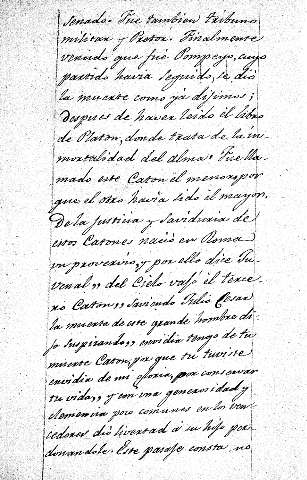 Senado. Fue tambien tribuno
militar y Pretor. Finalmente
viendo que fué Pompeyo, cuyo
partido havia seguido, se dió
la muerte como ya dijimos;
despues de haver leido el libro
de Platon, donde trata de la in-
mortalidad del alma: Fue lla-
mado este Caton el menor, por
que el otro havia sido el mayor.
De la justicia y saviduria de
estos Catones nació en Roma
un proverbio, y por ello dice Ju-
venal „ del Cielo vajó el terce-
ro Caton „ Saviendo Julio Cesar
la muerte de este grande hombre di-
jo suspirando „ envidia tengo de tu
muerte Caton, por que tu tuviste
envidia de mi gloria, por conservar
tu vida, „ y con una generosidad y
clemencia poco comunes en los ven-
cedores dió livertad a su hijo per-
donandole. Este pasaje consta no